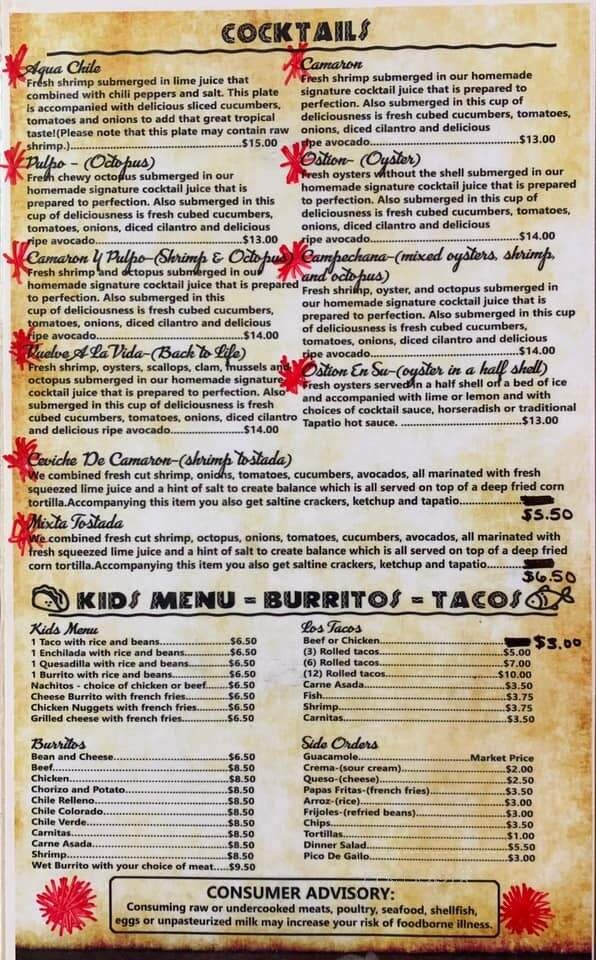 COCKTAILS
Aqua Chile
Fresh shrimp submerged in lime juice that
combined with chili peppers and salt. This plate
is accompanied with delicious sliced cucumbers,
tomatoes and onions to add that great tropical
taste!(Please note that this plate may contain raw
shrimp.)...............................................$15.00
Pulpo - (Octopus)
Fresh chewy octopus submerged in our
homemade signature cocktail juice that is
prepared to perfection. Also submerged in this
cup of deliciousness is fresh cubed cucumbers,
tomatoes, onions, diced cilantro and delicious
ripe avocado........................................$13.00
Camaron Y Pulpo-(Shrimp & Octopus)
Fresh shrimp and octopus submerged in our
homemade signature cocktail juice that is prepared
to perfection. Also submerged in this
cup of deliciousness is fresh cubed cucumbers,
tomatoes, onions, diced cilantro and delicious
ripe avocado........................................$14.00
Vuelve A La Vida-(Back to Life)
Fresh shrimp, oysters, scallops, clam, mussels and
octopus submerged in our homemade signature
cocktail juice that is prepared to perfection. Also
submerged in this cup of deliciousness is fresh
cubed cucumbers, tomatoes, onions, diced cilantro
and delicious ripe avocado........................$14.00
Camaron
Fresh shrimp submerged in our homemade
signature cocktail juice that is prepared to
perfection. Also submerged in this cup of
deliciousness is fresh cubed cucumbers, tomatoes,
onions, diced cilantro and delicious
ripe avocado........................................$13.00
Ostion- (Oyster)
Fresh oysters without the shell submerged in our
homemade signature cocktail juice that is prepared
to perfection. Also submerged in this cup of
deliciousness is fresh cubed cucumbers, tomatoes,
onions, diced cilantro and delicious
ripe avocado........................................$14.00
Campechana-(mixed oysters, shrimp,
and octopus)
Fresh shrimp, oyster, and octopus submerged in
our homemade signature cocktail juice that is
prepared to perfection. Also submerged in this cup
of deliciousness is fresh cubed cucumbers,
tomatoes, onions, diced cilantro and delicious
ripe avocado........................................$14.00
Ostion En Su-(oyster in a half shell)
Fresh oysters served in a half shell on a bed of ice
and accompanied with lime or lemon and with
choices of cocktail sauce, horseradish or traditional
Tapatio hot sauce. ................................$13.00
Ceviche De Camaron-(shrimp tostada)
We combined fresh cut shrimp, onions, tomatoes, cucumbers, avocados, all marinated with fresh
squeezed lime juice and a hint of salt to create balance which is all served on top of a deep fried corn
tortilla.Accompanying this item you also get saltine crackers, ketchup and tapatio..................
$5.50
Mixta Tostada
We combined fresh cut shrimp, octopus, onions, tomatoes, cucumbers, avocados, all marinated with
fresh squeezed lime juice and a hint of salt to create balance which is all served on top of a deep fried
corn tortilla.Accompanying this item you also get saltine crackers, ketchup and tapatio..........
$6.50
KIDS MENU = BURRITOS = TACOS
Kids Menu
1 Taco with rice and beans....................$6.50
1 Enchilada with rice and beans............$6.50
1 Quesadilla with rice and beans...........$6.50
1 Burrito with rice and beans................$6.50
Nachitos - choice of chicken or beef......$6.50
Cheese Burrito with french fries............$6.50
Chicken Nuggets with french fries.........$6.50
Grilled cheese with french fries.............$6.50
Los Tacos
Beef or Chicken................................ $3.00
(3) Rolled tacos................................$5.00
(6) Rolled tacos................................$7.00
(12) Rolled tacos..............................$10.00
Carne Asada....................................$3.50
Fish................................................$3.75
Shrimp............................................$3.75
Carnitas..........................................$3.50
Burritos
Bean and Cheese...............................$6.50
Beef................................................$8.50
Chicken...........................................$8.50
Chorizo and Potato............................$8.50
Chile Relleno....................................$8.50
Chile Colorado..................................$8.50
Chile Verde......................................$8.50
Carnitas..........................................$8.50
Carne Asada.....................................$8.50
Shrimp............................................$8.50
Wet Burrito with your choice of meat.....$9.50
Side Orders
Guacamole................................Market Price
Crema-(sour cream)..........................$2.00
Queso-(cheese)................................$2.50
Papas Fritas-(french fries)..................$3.50
Arroz-(rice).....................................$3.00
Frijoles-(refried beans)......................$3.00
Chips..............................................$3.50
Tortillas..........................................$1.00
Dinner Salad....................................$5.50
Pico De Gailo...................................$3.00
CONSUMER ADVISORY:
Consuming raw or undercooked meats, poultry, seafood, shellfish,
eggs or unpasteurized milk may increase your risk of foodborne illness.